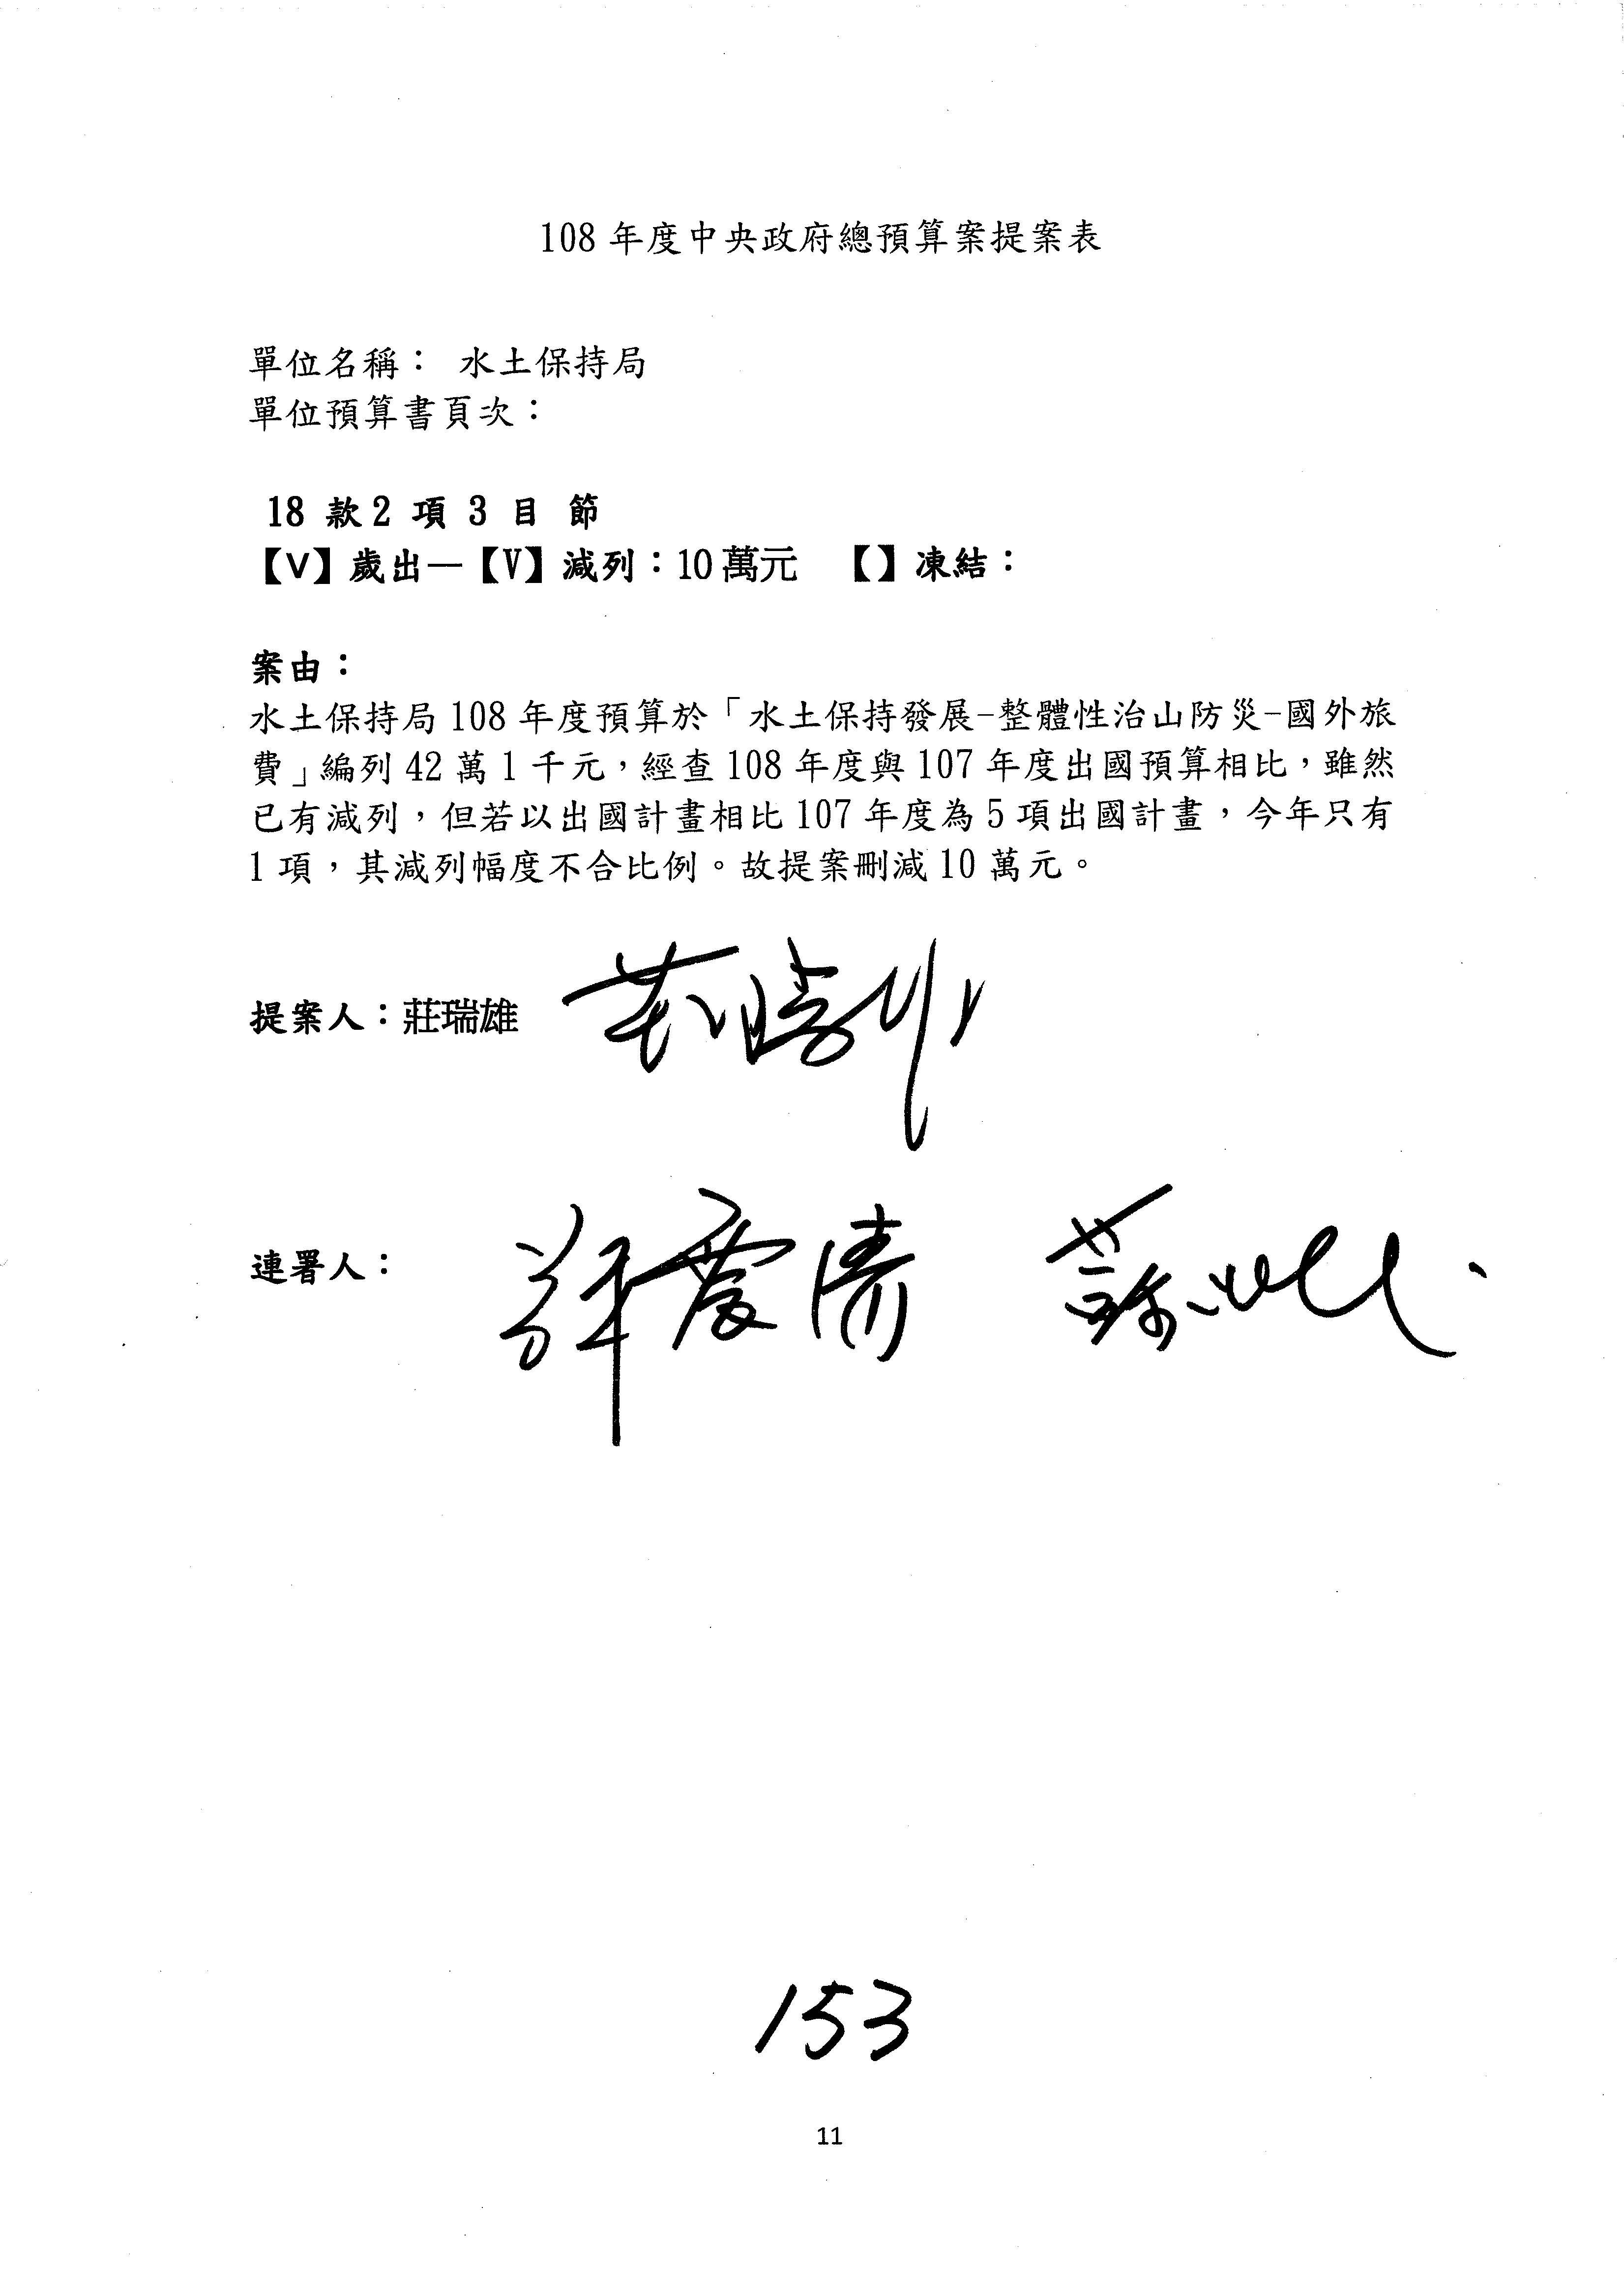 108 年度中央政府總預算案提案表
單位名稱： 水土保持局
單位預算書頁次：
18 款 2 項 3 目 節
【V】歲出—【V】減列：10 萬元 【】凍結：
案由：
水土保持局 108 年度預算於「水土保持發展-整體性治山防災-國外旅
費」編列 42 萬 1 千元，經查 108 年度與 107 年度出國預算相比，雖然
已有減列，但若以出國計畫相比 107 年度為 5 項出國計畫，今年只有
1 項，其減列幅度不合比例。故提案刪減 10 萬元。
提案人：莊瑞雄
連署人：
153
11